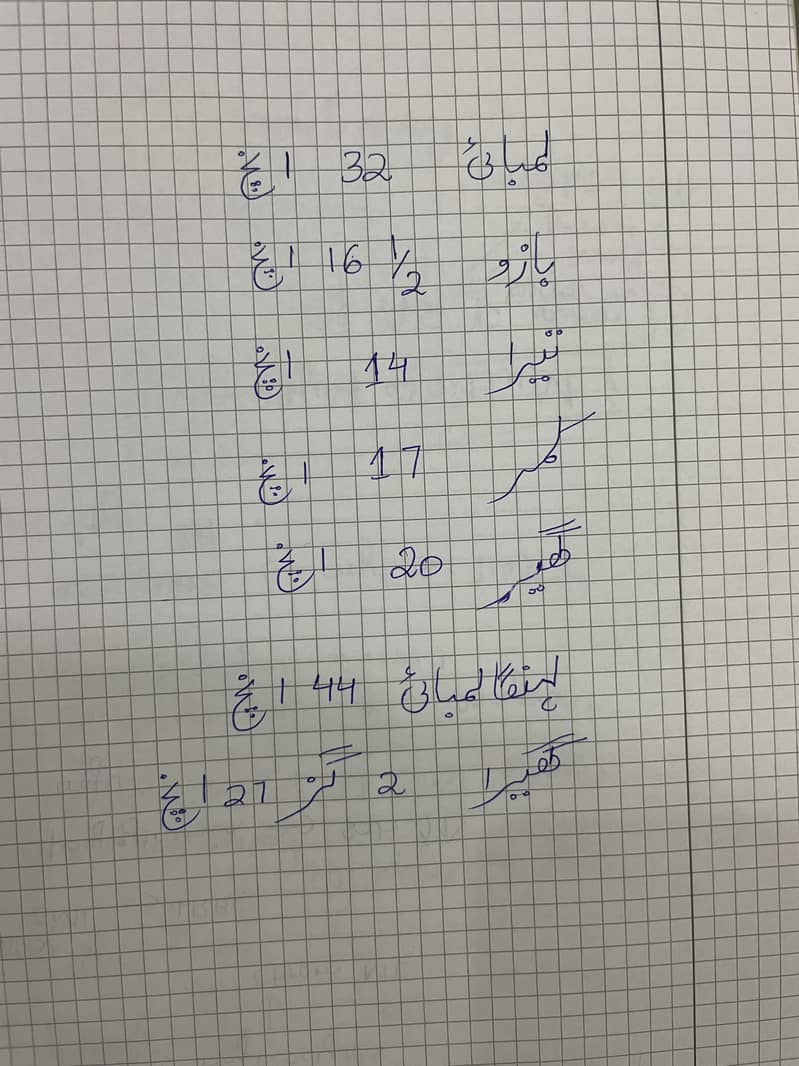 لمبائ 32 انچ
بازو 16 1/2 انچ
تیرا 14 انچ
کمر 17 انچ
گھیر 20 انچ
لہنگا لمبائ 44 انچ
گھیرا 2 گز 27 انچ